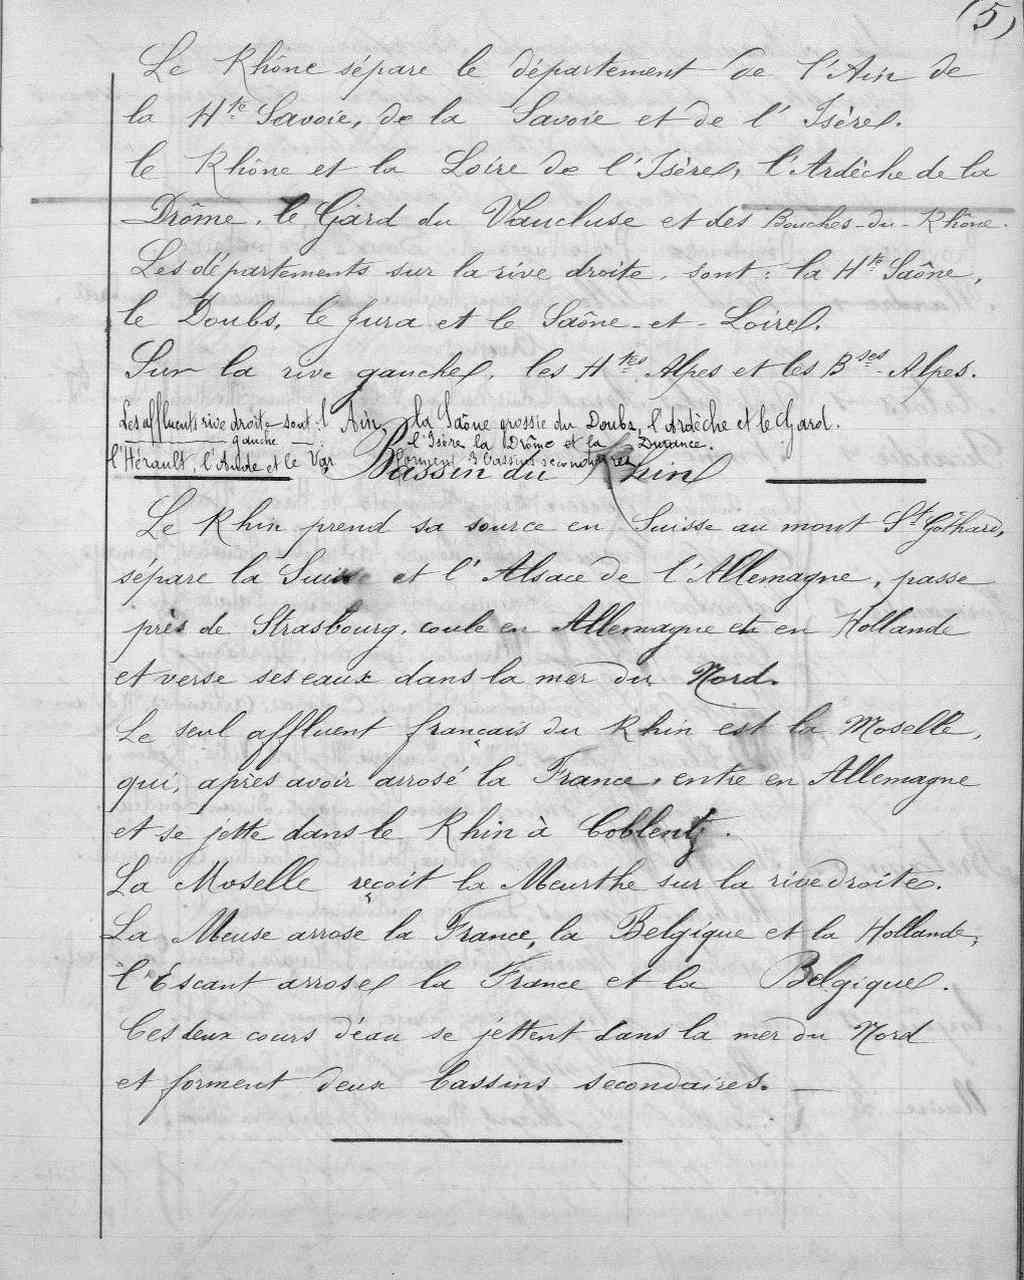 (5)
Le Rhône sépare le département de l'Ain de
la Hte Savoie, de la Savoie et de l'Isère.
le Rhône et la Loire de l'Isère, l'Ardèche de la
Drôme, le Gard du Vaucluse et des Bouches-du-Rhône.
Les départements sur la rive droite, sont: la Hte Saône,
le Doubs, le Jura et le Saône-et-Loire.
Sur la rive gauche, les Htes Alpes et les Bses-Alpes.
Les affluents rive droite sont: l'Ain, la Saône grossie du Doubs, l'Ardèche et le Gard.
— gauche — : l'Isère la Drôme et la Durance.
l'Hérault, l'Aude et le Var forment 3 bassins secondaires
Bassin du Rhin
Le Rhin prend sa source en Suisse au mont St Gothard,
sépare la Suisse et l'Alsace de l'Allemagne, passe
près de Strasbourg, coule en Allemagne et en Hollande
et verse ses eaux dans la mer du Nord.
Le seul affluent français du Rhin est la Moselle,
qui, après avoir arrosé la France, entre en Allemagne
et se jette dans le Rhin à Coblentz.
La Moselle reçoit la Meurthe sur la rive droite.
La Meuse arrose la France, la Belgique et la Hollande,
l'Escaut arrose la France et la Belgique.
Ces deux cours d'eau se jettent dans la mer du Nord
et forment deux bassins secondaires. —